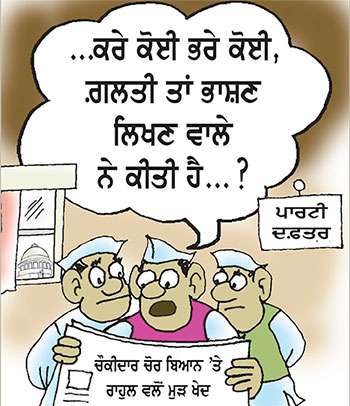 ...ਕਰੇ ਕੋਈ ਭਰੇ ਕੋਈ,
.ਗਲਤੀ ਤਾਂ ਭਾਸ਼ਣ
ਲਿਖਣ ਵਾਲੇ
ਨੇ ਕੀਤੀ ਹੈ...?
ਪਾਰਟੀ
ਦਫ਼ਤਰ
ਚੌਕੀਦਾਰ ਚੋਰ ਬਿਆਨ ’ਤੇ
ਰਾਹੁਲ ਵਲੋਂ ਮੁੜ ਖੇਦ